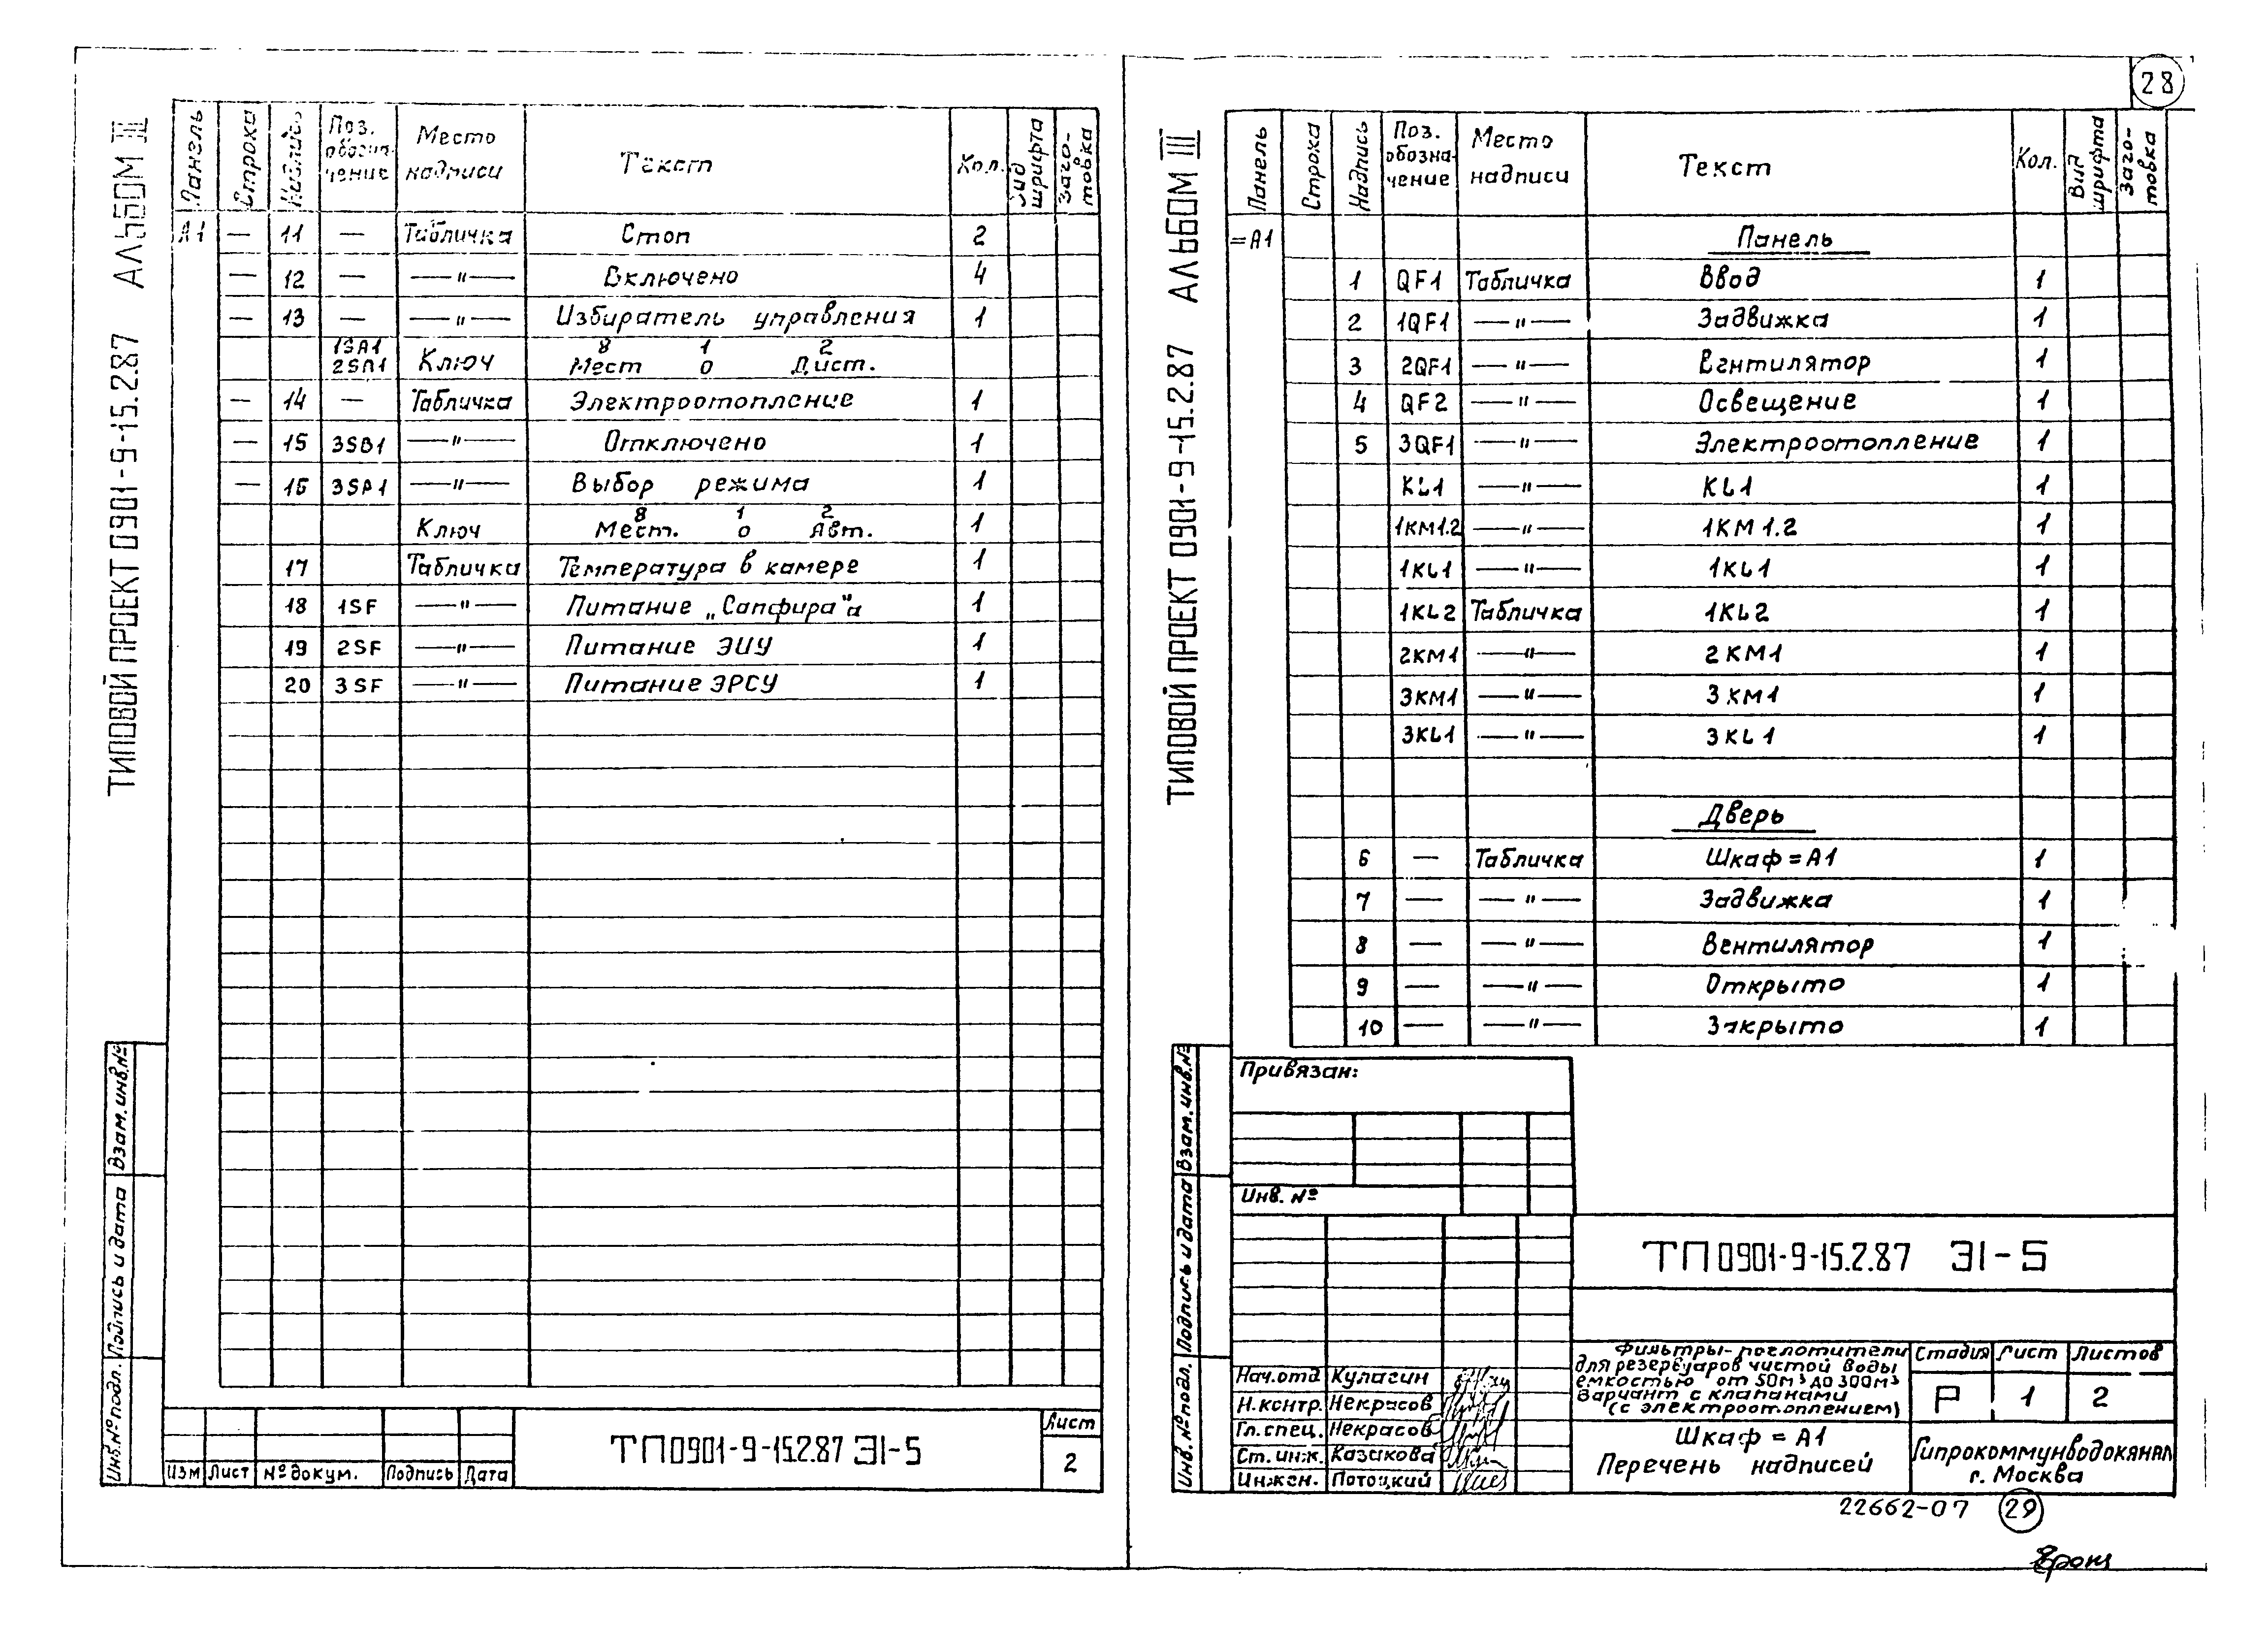 28
ТИПОВОЙ ПРОЕКТ 0901-9-15.2.87 АЛЬБОМ III
Панель Строка Надпись Поз. обозна-чение Место надписи Текст Кол. Вид шрифта Заго-товка
А1 — 11 — Табличка Стоп 2
— 12 — —"— Включено 4
— 13 — —"— Избиратель управления 1
1SA1 2SA1 Ключ 8 Мест 1 0 2 Дист.
— 14 — Табличка Электроотопление 1
— 15 3SB1 —"— Отключено 1
— 16 3SA1 —"— Выбор режима 1
Ключ 8 Мест. 1 0 2 Авт. 1
17 Табличка Температура в камере 1
18 1SF —"— Питание „Сапфира"а 1
19 2SF —"— Питание ЭИУ 1
20 3SF —"— Питание ЭРСУ 1
Инв.№подл. Подпись и дата Взам.инв.№
Изм Лист № докум. Подпись Дата
ТП 0901-9-15.2.87 Э1-5
Лист
2
ТИПОВОЙ ПРОЕКТ 0901-9-15.2.87 АЛЬБОМ III
Панель Строка Надпись Поз. обозна-чение Место надписи Текст Кол. Вид шрифта Заго-товка
=А1 Панель
1 QF1 Табличка Ввод 1
2 1QF1 —"— Задвижка 1
3 2QF1 —"— Вентилятор 1
4 QF2 —"— Освещение 1
5 3QF1 —"— Электроотопление 1
KL1 —"— KL1 1
1KM1.2 —"— 1KM1.2 1
1KL1 —"— 1KL1 1
1KL2 Табличка 1KL2 1
2KM1 —"— 2KM1 1
3KM1 —"— 3KM1 1
3KL1 —"— 3KL1 1
Дверь
6 — Табличка Шкаф =А1 1
7 — —"— Задвижка 1
8 — —"— Вентилятор 1
9 — —"— Открыто 1
10 — —"— Закрыто 1
Инв.№подл. Подпись и дата Взам.инв.№
Привязан:
Инв. №
ТП 0901-9-15.2.87 Э1-5
Нач.отд Кулагин
Н.контр. Некрасов
Гл.спец. Некрасов
Ст.инж. Казакова
Инжен. Потоцкий
Фильтры-поглотители
для резервуаров чистой воды
емкостью от 50м³ до 300м³
Вариант с клапанами
(с электроотоплением)
Стадия Лист Листов
Р 1 2
Шкаф =А1
Перечень надписей
Гипрокоммунводоканал
г. Москва
22662-07 29